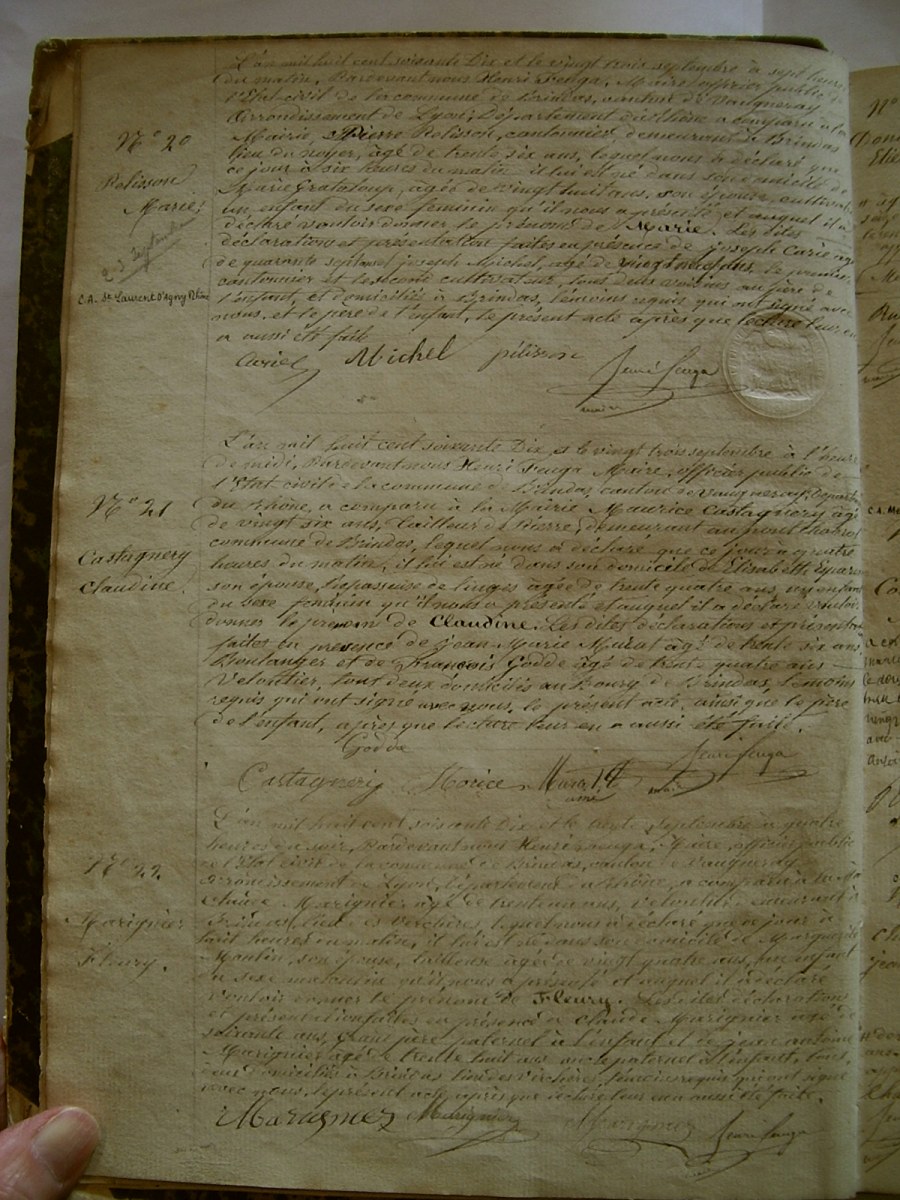 L'an mil huit cent soixante Dix et le vingt trois septembre à sept heures
du matin, Pardevant nous Henri Ferga, Maire, officier public de
l'Etat civil de la commune de Brindas, canton de Vaugneray
Arrondissement de Lyon, Département du Rhône a comparu à la
N° 20
Mairie Pierre Pelisson, cantonnier demeurant à Brindas
lieu du noyer, âgé de trente six ans, lequel nous a déclaré que
Pelisson
Marie;
23 Septembre
C.A. St Laurent d'Agny
ce jour à six heures du matin il lui est né dans son domicile de
Marie Grataloup, âgée de vingt huit ans, son épouse, cultivatrice
un enfant du sexe féminin qu'il nous a présenté et auquel il a
déclaré vouloir donner le prénom de Marie. Les dites
déclarations et présentation faites en présence de joseph Carié âgé
de quarante sept ans, joseph Michel, âgé de vingt neuf ans, le premier
cantonnier et le second cultivateur, tout deux voisins au père de
l'enfant, et domiciliés à Brindas, témoins requis qui ont signé avec
nous, et le père de l'enfant, le présent acte après que lecture leur en
a aussi été faite
Michel pelisson
L'an mil huit cent soixante Dix, et le vingt trois septembre à l'heure
de midi, Pardevant nous Henri Ferga Maire, officier public de
l'Etat civil de la commune de Brindas, canton de Vaugneray, Départ
N° 21
du Rhône, a comparu à la Mairie Maurice Castagnery âgé
de vingt six ans, Tailleur de Pierre, demeurant au pont Chabrol
Castagnery
Claudine.
commune de Brindas, lequel nous a déclaré que ce jour à quatre
heures du matin, il lui est né dans son domicile de Elisabeth
son épouse, Repasseuse de linges âgée de trente quatre ans, un enfant
du sexe féminin qu'il nous a présenté et auquel il a déclaré vouloir
donner le prénom de Claudine. Les dites déclarations et présentation
faites en présence de Jean Marie Murat âgé de trente six ans
Boulanger et de François Godde âgé de trente quatre ans
Veloutier, tout deux domiciliés au Bourg de Brindas, témoins
requis qui ont signé avec nous, le présent acte, ainsi que le père
de l'enfant, après que lecture leur en a aussi été faite.
Godde
Castagnery Morice Murat
L'an mil huit cent soixante Dix et le trente septembre à quatre
heures du soir, Pardevant nous Henri Ferga, Maire, officier public
de l'Etat civil de la commune de Brindas, canton de Vaugneray
N° 22.
Arrondissement de Lyon, Département du Rhône, a comparu à la Mairie
Claude Marignier âgé de trente un ans, Veloutier demeurant à
Marignier
Fleury.
Brindas, lieu des Verchères, lequel nous a déclaré que ce jour à
huit heures du matin, il lui est né dans son domicile de Marguerite
Moulin, son épouse, tailleuse âgée de vingt quatre ans, un enfant
du sexe masculin qu'il nous a présenté et auquel il a déclaré
vouloir donner le prénom de Fleury. Les dites déclarations
et présentation faites en présence de Claude Marignier âgé de
soixante ans, grand père paternel à l'enfant et de jean antoine
Marignier âgé de trente huit ans oncle paternel à l'enfant, tous
deux domiciliés à Brindas lieu des Verchères, témoins requis qui ont signé
avec nous, le présent acte, après que lecture leur en a aussi été faite.
Maragnier Marignier